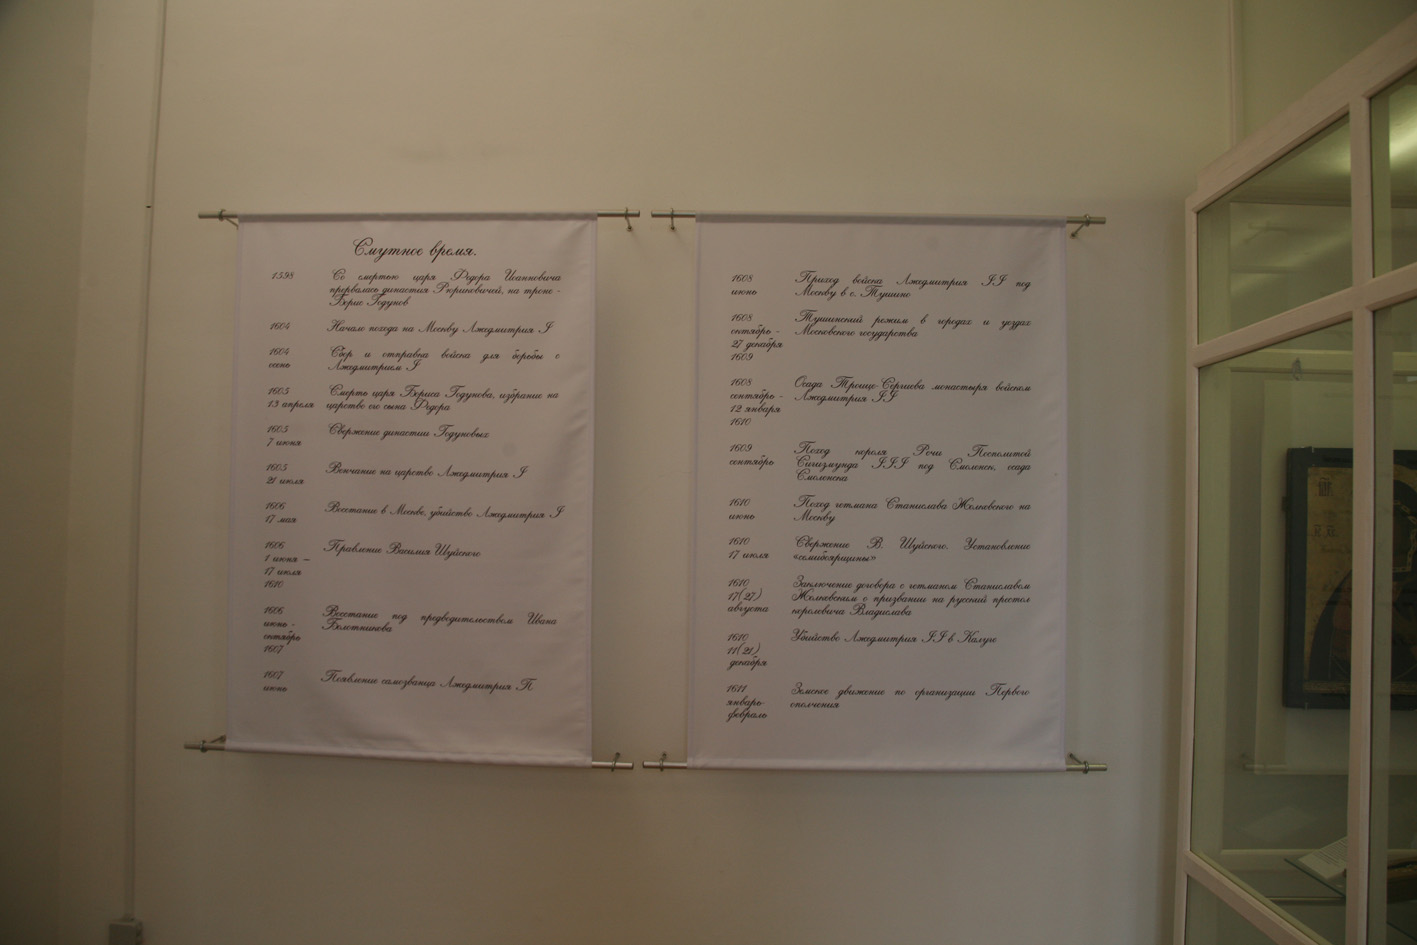 Смутное время.
1598 Со смертью царя Федора Иоанновича
прервалась династия Рюриковичей, на троне -
Борис Годунов
1604 Начало похода на Москву Лжедмитрия I
1604 Сбор и отправка войска для борьбы с
осень Лжедмитрием I
1605 Смерть царя Бориса Годунова, избрание на
13 апреля царство его сына Федора
1605 Свержение династии Годуновых
7 июня
1605 Венчание на царство Лжедмитрия I
21 июля
1606 Восстание в Москве, убийство Лжедмитрия I
17 мая
1606 Правление Василия Шуйского
1 июня –
17 июля
1610
1606 Восстание под предводительством Ивана
июнь - Болотникова
октябрь
1607
1607 Появление самозванца Лжедмитрия П
июнь
1608 Приход войска Лжедмитрия II под
июнь Москву в с. Тушино
1608 Тушинский режим в городах и уездах
октябрь - Московского государства
27 декабря
1609
1608 Осада Троице-Сергиева монастыря войском
сентябрь - Лжедмитрия II
12 января
1610
1609 Поход короля Речи Посполитой
сентябрь Сигизмунда III под Смоленск, осада
Смоленска
1610 Поход гетмана Станислава Жолкевского на
июнь Москву
1610 Свержение В. Шуйского. Установление
17 июля «семибоярщины»
1610 Заключение договора с гетманом Станиславом
17(27) Жолкевским о призвании на русский престол
августа королевича Владислава
1610 Убийство Лжедмитрия II в Калуге
11(21)
декабря
1611 Земское движение по организации Первого
январь- ополчения
февраль